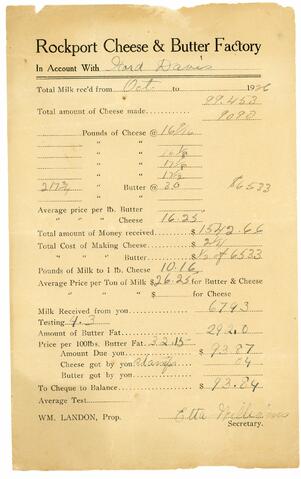 Rockport Cheese & Butter Factory
In Account With Ford Davis
Total Milk rec'd from Oct. to 1926
99.453
Total amount of Cheese made 9098
Pounds of Cheese @ 16
" " "
" " "
" " " 17
" " " 17
217¾ Butter @ 30 $65.33
Average price per lb. Butter
" " " Cheese 16.25
Total amount of Money received $ 1542.66
Total Cost of Making Cheese $ 2
" " " Butter $ ½ of 65.33
Pounds of Milk to 1 lb. Cheese 10.16
Average Price per Ton of Milk $ 26.25 for Butter & Cheese
$ for Cheese
Milk Received from you 6793
Testing 4.3
Amount of Butter Fat 292.0
Price per 100lbs. Butter Fat 32.15
Amount Due you $ 93.87
Cheese got by you stamps .04
Butter got by you
To Cheque to Balance $ 93.84
Average Test
WM. LANDON, Prop. Etta Williams
Secretary.